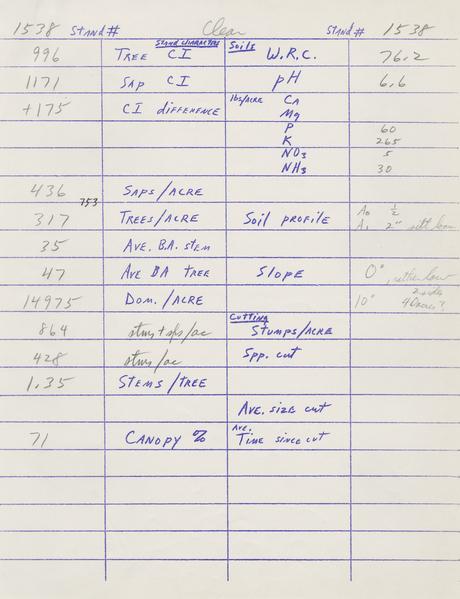 1538 STAND # Clear STAND # 1538
STAND CHARACTERS Soils
996 TREE CI W.R.C. 76.2
1171 SAP CI pH 6.6
+175 CI DIFFERENCE lbs/ACRE CA
Mg
P 60
K 265
NO3 5
NH3 30
436 SAPS/ACRE
753
317 TREES/ACRE Soil PROFILE A0 1/2
A1 2" silt loam
35 AVE. B.A. STEM
47 AVE BA TREE SLOPE 0°, rather low
14975 DOM./ACRE 10°
CUTTING
864 stms + sps/ac STUMPS/ACRE
428 stms/ac Spp. CUT
1.35 STEMS/TREE
AVE. SIZE CUT
71 CANOPY % AVE. TIME SINCE CUT